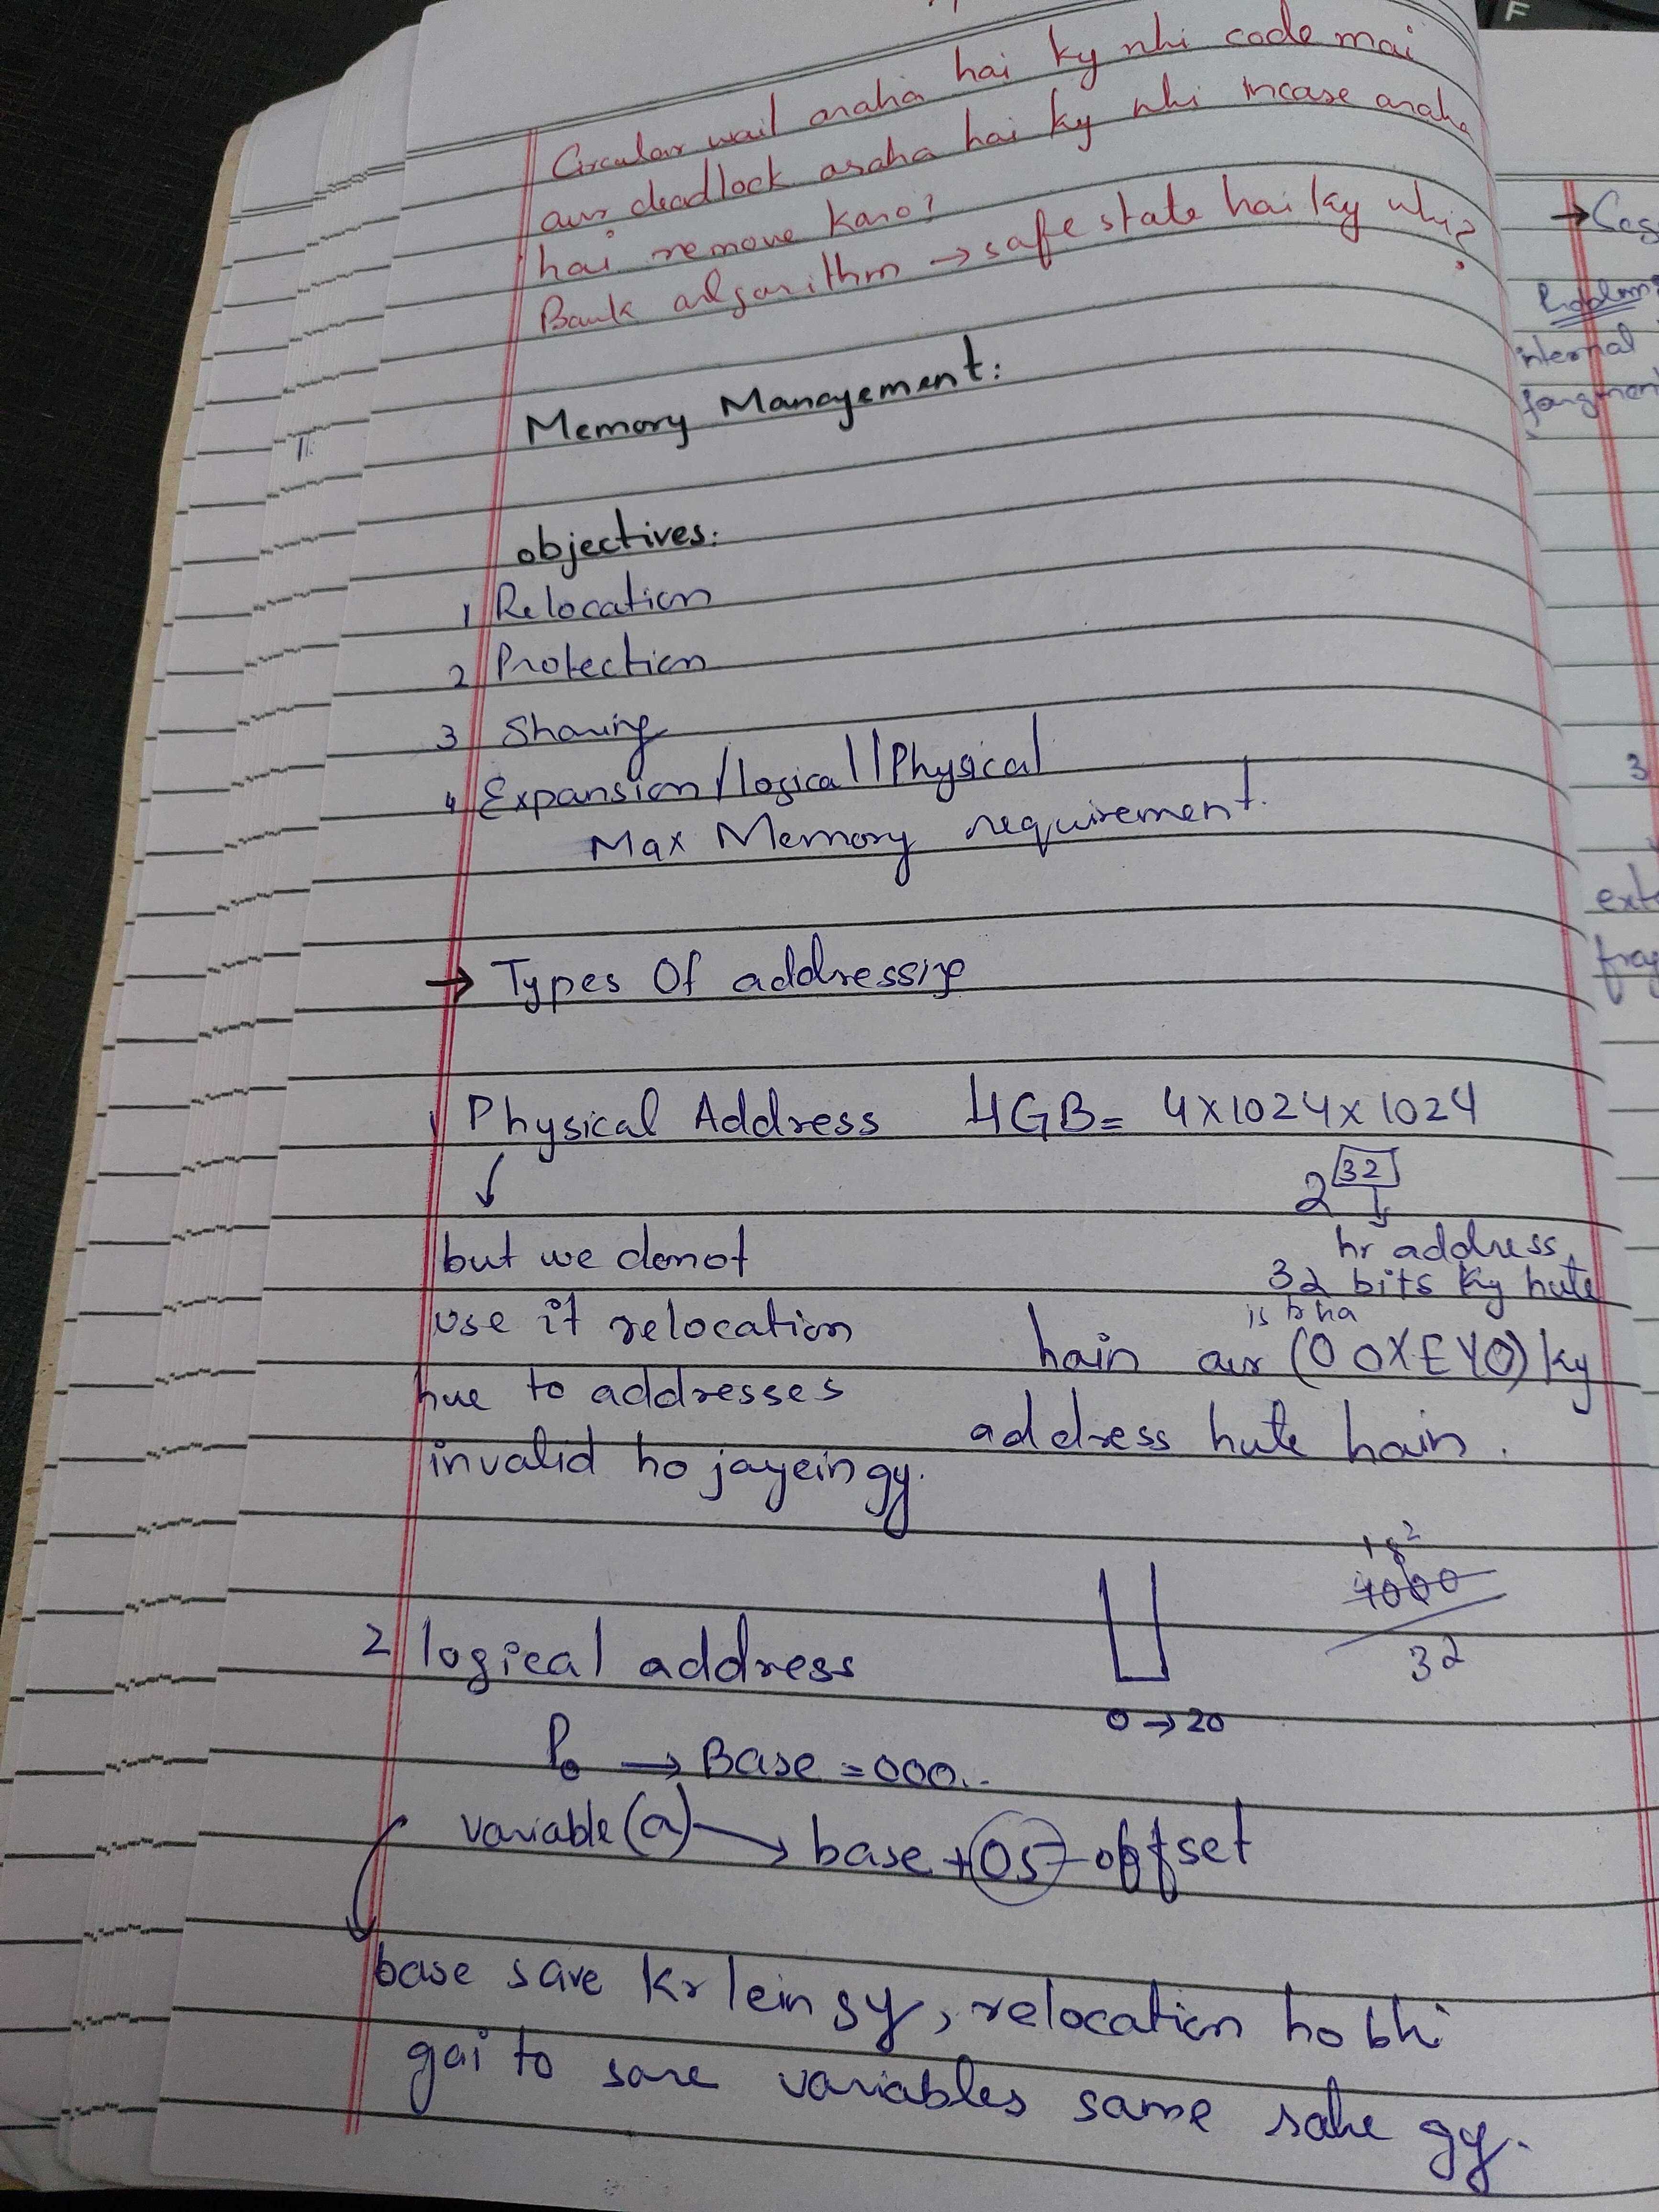 Circular wait araha hai ky nhi code mai
aur deadlock araha hai ky nhi incase araha
hai remove karo?
Bank algorithm → safe state hai ky nhi?
Memory Management:
objectives:
1 Relocation
2 Protection
3 Sharing
4 Expansion/logical/Physical
Max Memory requirement.
→ Types Of addressing
1 Physical Address 4GB = 4x1024x1024
2^32
but we donot
use it relocation
hue to addresses
invalid ho jayein gy.
hr address
32 bits ky hute
is trha
hain aur (00XEY0) ky
address hute hain.
4000
32
2 logical address
0 → 20
P0 → Base = 000..
variable (a) → base + 05 offset
base save kr lein gy, relocation ho bhi
gai to sare variables same rahe gy.
→
internal
3